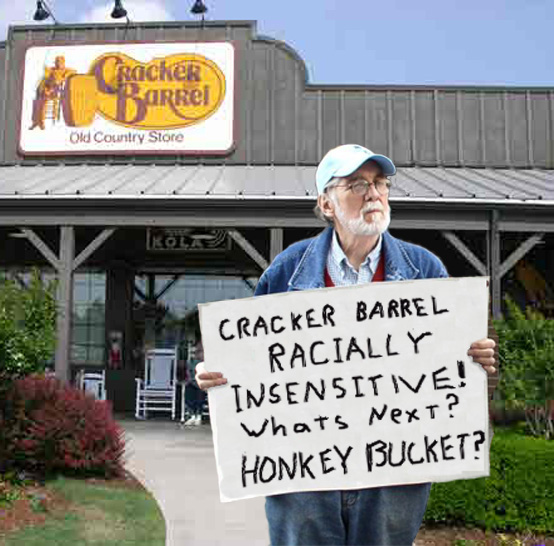 Cracker
Barrel
Old Country Store
KOLA
CRACKER BARREL
RACIALLY
INSENSITIVE!
Whats Next?
HONKEY BUCKET?